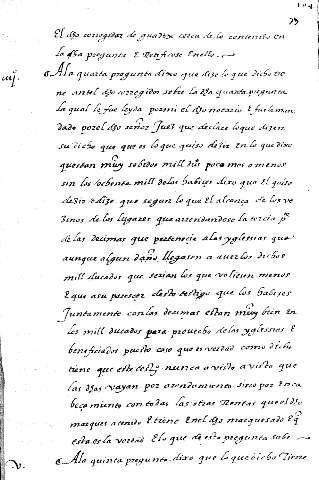 73
El dho corregidor de guadix cerca de lo contenido en
la dha pregunta E Retificose en ello.
iiij. A la quarta pregunta dixo que dize lo que dicho tie
ne antel dho corregidor sobre la dha quarta pregunta
la qual le fue leyda por mi el dho notario E fue le man
dado por el dho señor Juez que declare lo que dizen
su dicho que que es lo que quiso dezir en lo que dixo
questan muy sobidos mill ducados poco mas o menos
sin los ochenta mill de los habizes dixo que El quiso
dezir e dize que segun lo que El alcança de los ve
zinos de los lugares que arrendandose la tercia p.e
de las decimas que pertenecie a las yglesias que
aunque algun daño llegasen a aver los dichos
mill ducados que serian los que valiesen menos
E que a su parescer deste testigo que los habizes
Juntamente con las decimas estan muy bien en
los mill ducados para provecho de las yglesias E
beneficiados puesto caso que es verdad como dicho
tiene que este testigo nunca a visto a visto que
las dhas vayan por arrendamiento sino por Enca
beçamiento con todas las otras Rentas que el dho
marques a tenido E tiene En el dho marquesado E que
esta es la verdad E lo que de esta pregunta sabe
v. A la quinta pregunta dixo que lo que dicho tiene